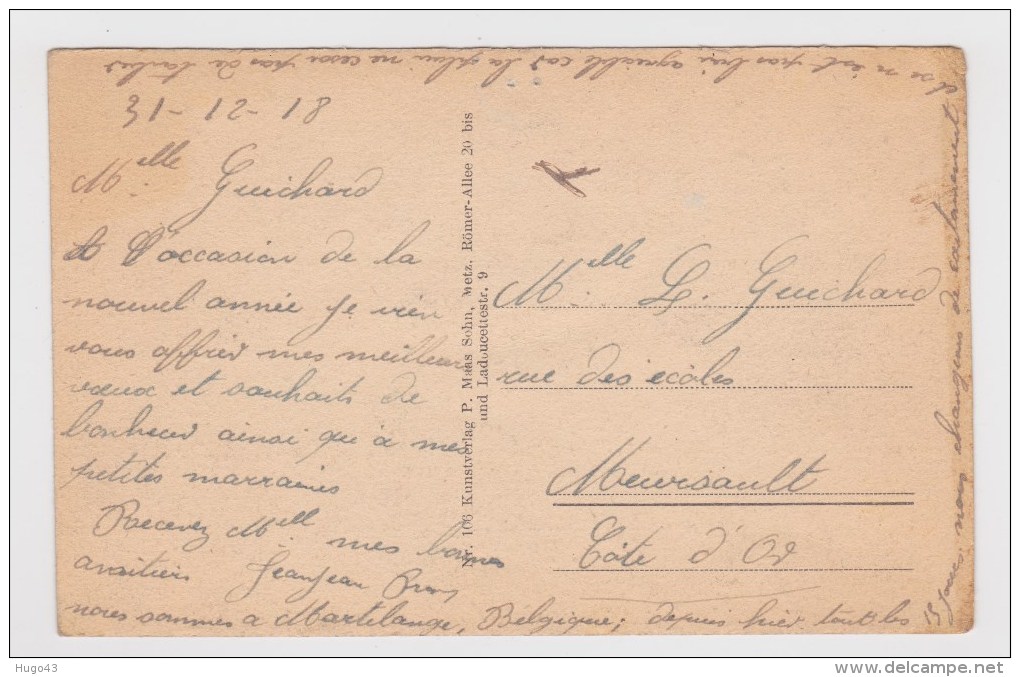 31-12-18
Mlle Guichard
A l'occasion de la
nouvel année je vien
vous offrir mes meilleurs
vœux et souhaits de
bonheur ainsi qu'à mes
petites marraines
Recevez Mell mes bonnes
amitiers Jeanjean
nous sommes a Martelange, Belgique; depuis hier tout les
15 jours nous changeons de cantonnement
et se n'est pas très agréable car la plui ne cesse pas de tomber
Nr. 106 Kunstverlag P. Maas Sohn, Metz, Römer-Allee 20 bis
und Ladoucettestr. 9
Mlle L. Guichard
rue des écoles
Meursault
Côte d'Or
Hugo43
www.delcampe.net